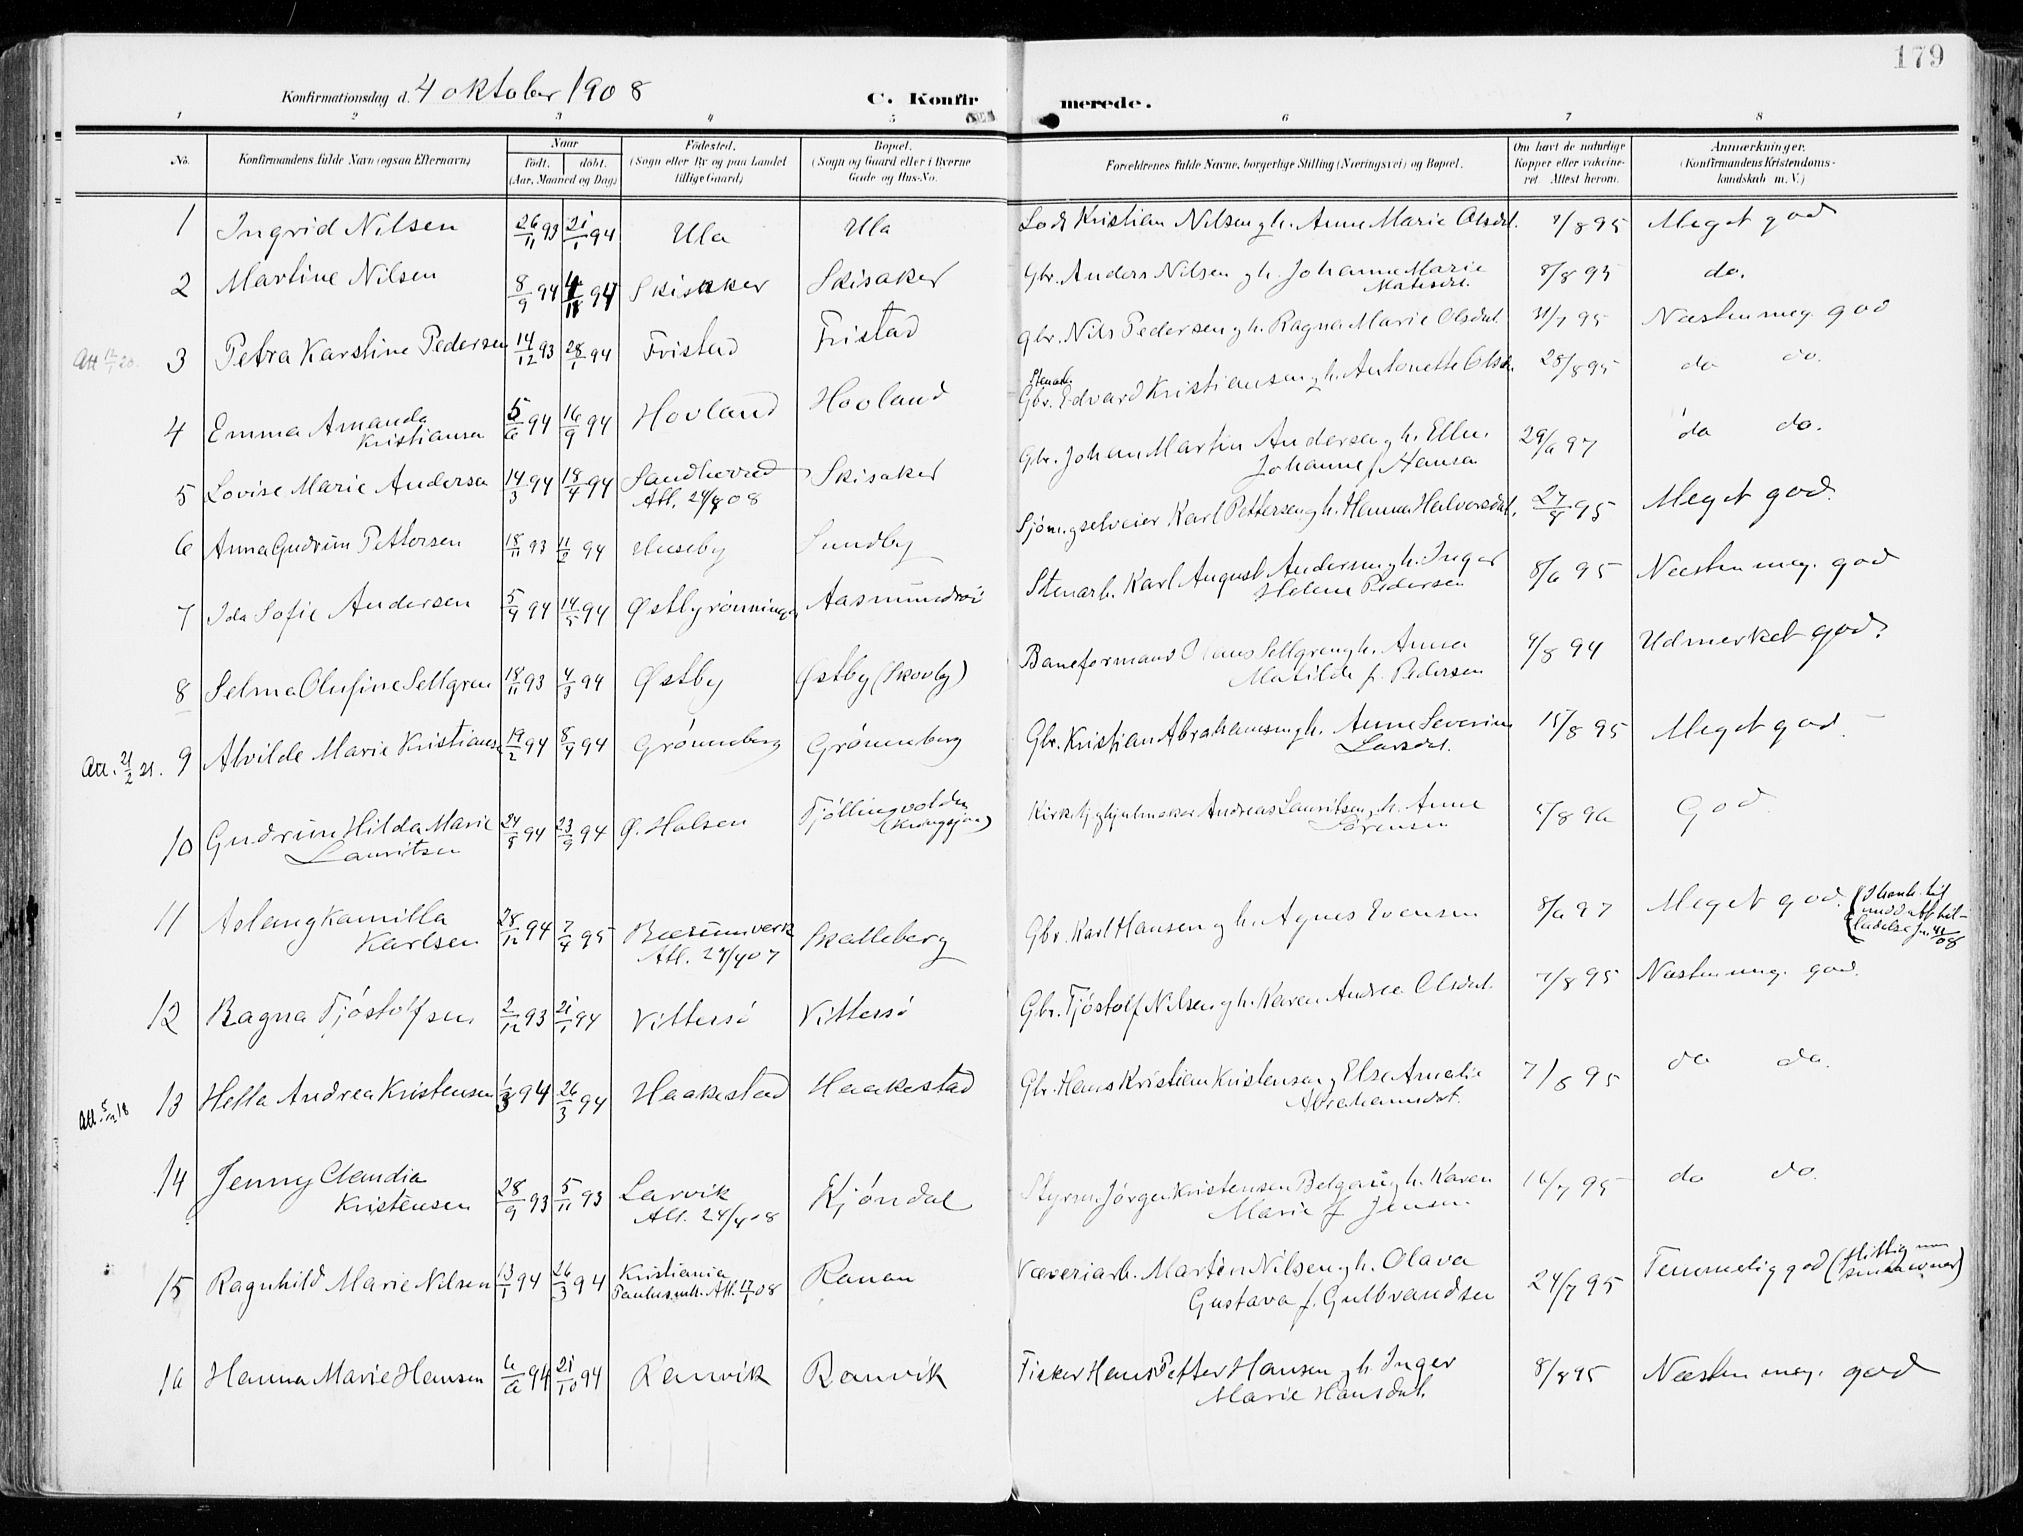 179
Konfirmationsdag d. 4 oktober 1908 C. Konfir merede.
1 2 3 4 5 6 7 8
No. Konfirmandens fulde Navn (ogsaa Efternavn) Naar født. døbt. (Aar, Maaned og Dag) Fødested. (Sogn eller By og paa Landet tillige Gaard) Bopæl. (Sogn og Gaard eller i Byerne Gade og Hus-No. Forældrenes fulde Navne, borgerlige Stilling (Næringsvei) og Bopæl. Om havt de naturlige Kopper eller vakcineret. Attest herom. Anmærkninger. (Konfirmandens Kristendomskundskab m. V.)
1 Ingrid Nilsen 26/11 93 21/1 94 Ula Ula Lods Kristian Nilsen og h. Anne Marie Olsdat. 7/8 95 Meget god
2 Martine Nilsen 8/9 94 4/11 94 Skisaker Skisaker Gbr. Anders Nilsen og h. Johanne Marie
8/8 95 do.
3 Petra Karstine Pedersen 14/12 93 28/1 94 Fristad Fristad gbr. Nils Pedersen og h. Ragna Marie Olsdat. 31/7 95 Næsten meg. god
4 Emma Amanda
Kristiansen 5/6 94 16/9 94 Hovland Hovland Stenarb.
Gbr. Edvard Kristiansen og h. Antonette Olsdat. 28/8 95 do do.
5 Lovise Marie Andersen 14/3 94 18/4 94 Sandherred
Att. 24/4 08 Skisaker Gbr. Johan Martin Andersen og h. Ellen
Johanne f. Hansen 29/6 97 do do.
6 Anna Gudrun Pettersen 18/11 93 11/2 94 Huseby Sundby Sjøm. og selveier Karl Pettersen og h. Hanna Halvorsdat. 27/8 95 Meget god.
7 Ida Sofie Andersen 5/4 94 14/5 94 Østbyrønningen Aasmundrøi Stenarb. Karl August Andersen og h. Inger
Helene Pedersen 8/6 95 Næsten meg. god
8 Selma Olufine Sellgren 18/11 93 4/3 94 Østby Østby (Skovby) Baneformand Olaus Sellgren og h. Anna
Matilde f. Pedersen 4/8 94 Udmerket god.
Att. 21/2 21. 9 Alvilde Marie Kristiansen 19/2 94 8/4 94 Grønneberg Grønneberg Gbr. Kristian Abrahamsen og h. Anne Severine
Larsdat. 15/8 95 Meget god
10 Gudrun Hilda Marie
Lauritsen 24/8 94 23/9 94 Ø. Holsen Tjøllingvolden
Kirketj. og hjulmaker Andreas Lauritsen og h. Anne
Sørensen 5/8 96 God.
11 Aslaug Kamilla
Karlsen 28/12 94 7/4 95 Bærumsverk
Att. 24/4 07 Skalleberg Gbr. Karl Hansen og h. Agnes Evensen 8/6 97 Meget god.
12 Ragna Tjøstolfsen 2/12 93 21/1 94 Vittersø Vittersø Gbr. Tjøstolf Nilsen og h. Karen Andrea Olsdat. 7/8 95 Næsten meg. god.
Att. 5/12 18 13 Hella Andrea Kristensen 1/3 94 26/3 94 Haakestad Haakestad Gbr. Hans Kristian Kristensen og Else Amalie
Abrahamsdat. 7/8 95 do do.
14 Jenny Claudia
Kristensen 28/9 93 5/11 93 Larvik
Att. 24/4 08 Kjøndal Styrm. Jørgen Kristensen Belgau og h. Karen
Marie f. Jensen 16/7 95 do do.
15 Ragnhild Marie Nilsen 13/1 94 26/3 94 Kristiania
Paulus mh. Att. 17/1 08 Ranan Væveriarb. Martin Nilsen og h. Olava
Gustava f. Gulbrandsen 24/7 95 Temmelig god
16 Hanna Marie Hansen 6/6 94 21/10 94 Ranvik Ranvik Fisker Hans Petter Hansen og h. Inger
Marie Hansdat. 8/8 95 Næsten meg. god